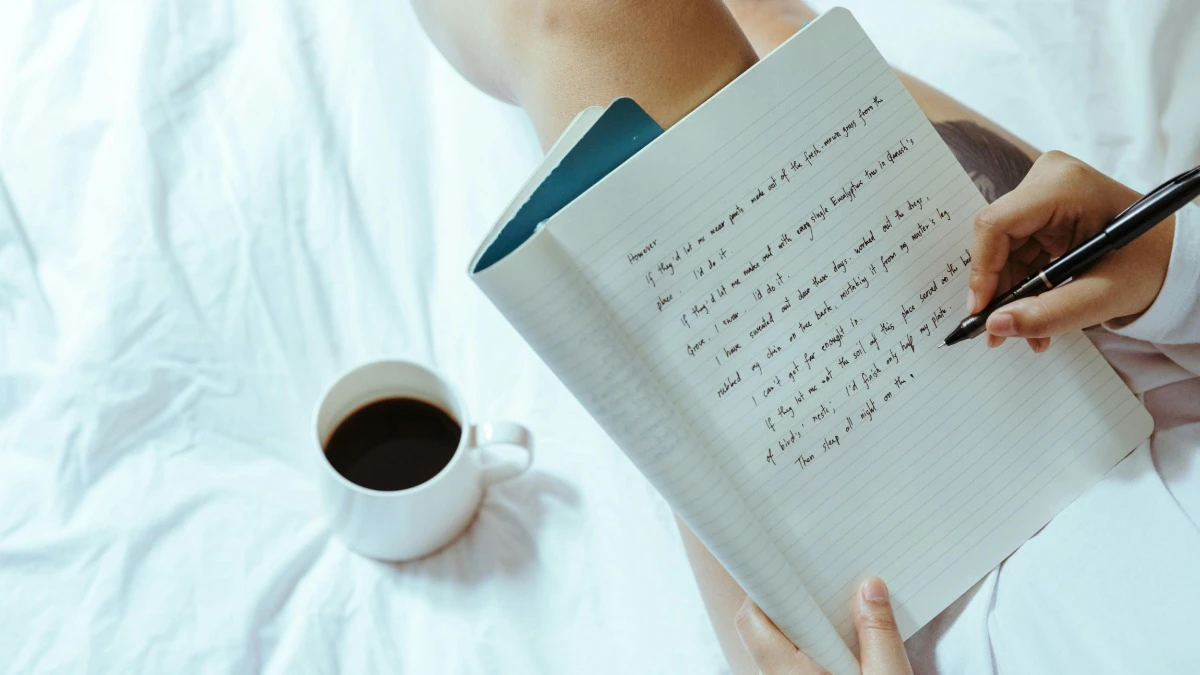 However
If they'd let me wear pants made out of the fresh-mown grass from the
place. I'd do it.
If they'd let me make out with every single Eucalyptus tree in
Grove. I swear. I'd do it.
I have sweated out dear these days. worked out the dregs,
rubbed my chin on the bark, mistaking it from my master's leg
I can't get far enough in.
If they let me eat the soil of this place served on the bed
of birds' nests; I'd finish only half my plate.
Then sleep all night on the